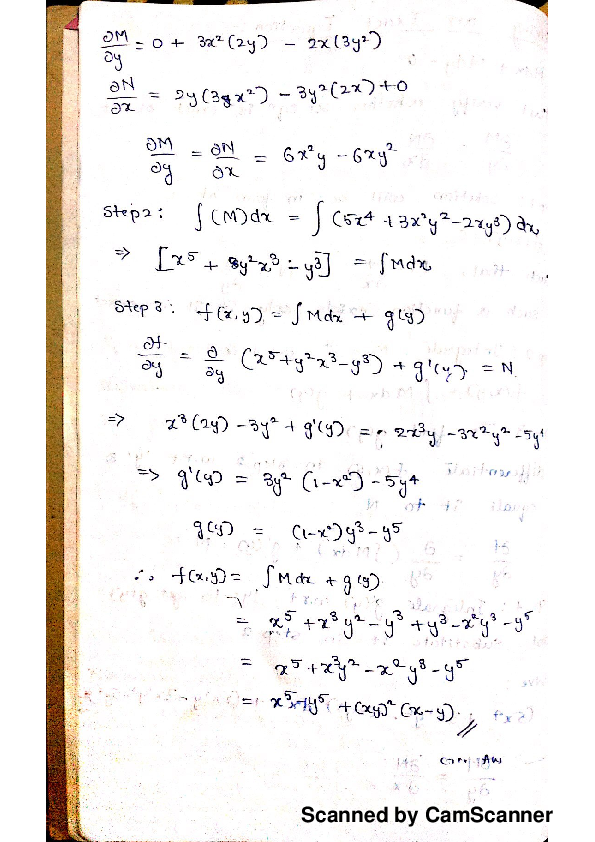 ∂M/∂y = 0 + 3x²(2y) − 2x(3y²)
∂N/∂x = 2y(3x²) − 3y²(2x) + 0
∂M/∂y = ∂N/∂x = 6x²y − 6xy²
Step2: ∫(M)dx = ∫(5x⁴ + 3x²y² − 2xy³) dx
⇒ [x⁵ + y²x³ − y³] = ∫Mdx
Step 3: f(x,y) = ∫Mdx + g(y)
∂f/∂y = ∂/∂y (x⁵ + y²x³ − y³) + g'(y) = N
⇒ x³(2y) − 3y² + g'(y) = 2x³y − 3x²y² − 5y⁴
⇒ g'(y) = 3y² (1−x²) − 5y⁴
g(y) = (1−x²)y³ − y⁵
∴ f(x,y) = ∫Mdx + g(y)
= x⁵ + x³y² − y³ + y³ − x²y³ − y⁵
= x⁵ + x³y² − x²y³ − y⁵
= x⁵ − y⁵ + (xy)² (x−y).
Scanned by CamScanner